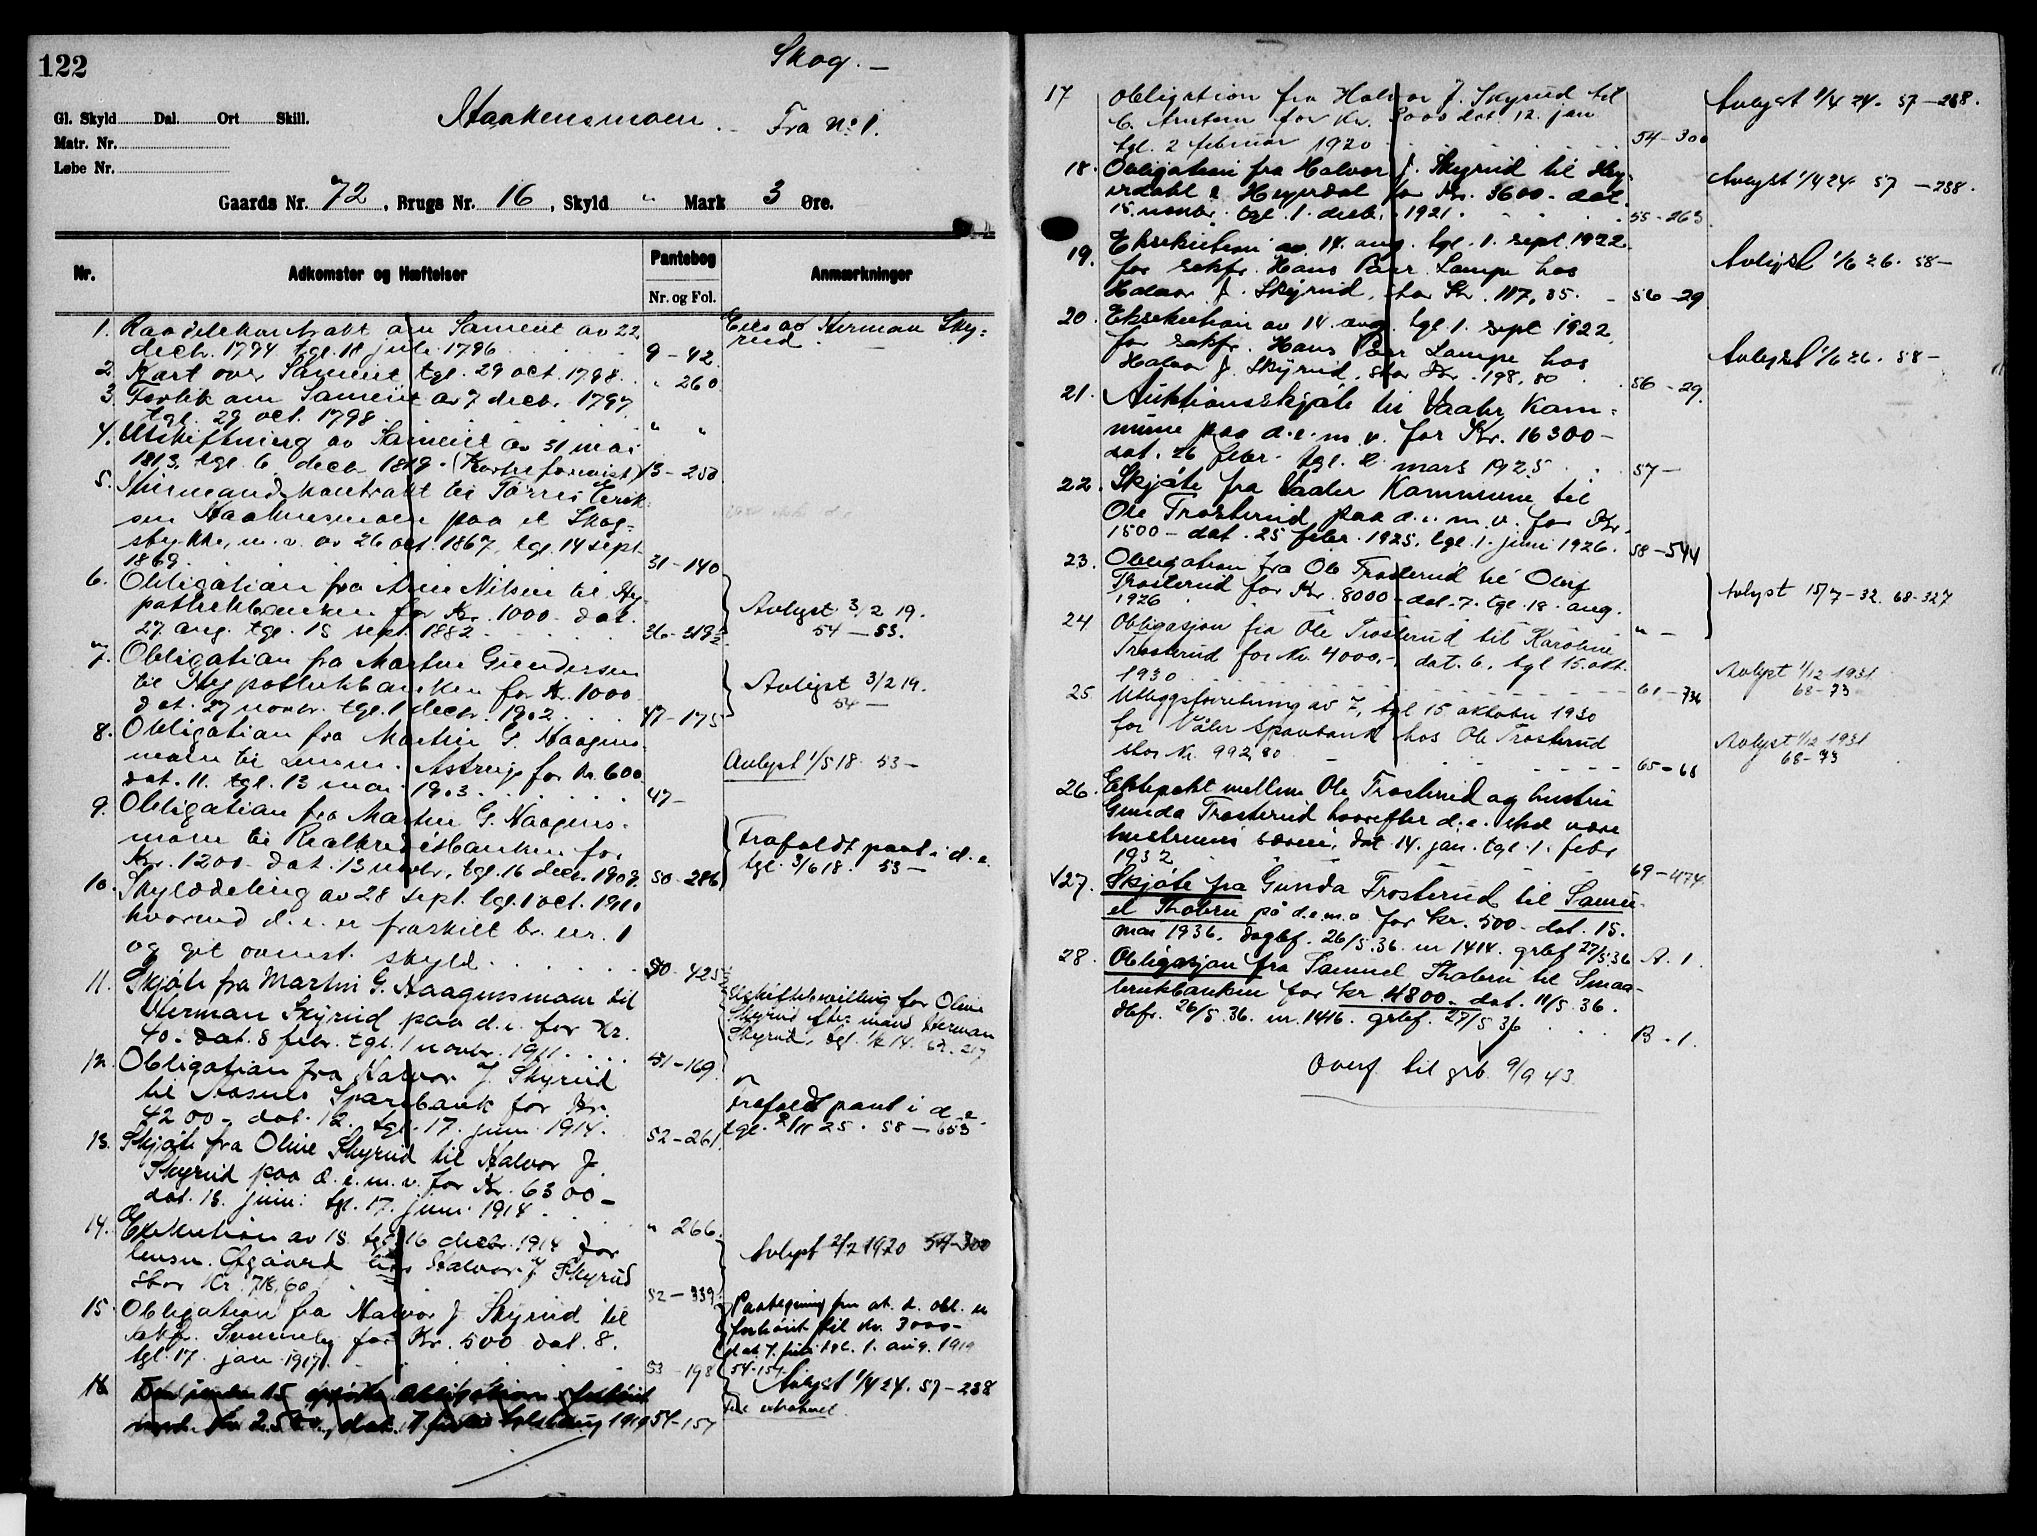 122
Skog. —
Gl. Skyld Dal. Ort Skill.
Haakensmoen. — Fra No 1.
Matr. Nr.
Løbe Nr.
Gaards Nr. 72, Brugs Nr. 16, Skyld " Mark 3 Øre.
Nr. Adkomster og Hæftelser Pantebog Nr. og Fol. Anmærkninger
1. Raadelskontrakt om Sameiet av 22 Eies av Herman Sky-
decbr. 1794 tgl. 18 juli 1796 9 - 42 rud
2. Kart over Sameiet tgl. 29 oct. 1798. " 260
3. Forlik om Sameiet av 7 decbr. 1797.
tgl. 29 oct. 1798 " "
4. Utskiftning av Sameiet av 31 mai
1813, tgl. 6 decbr 1819. 13 - 250
5. kontrakt til Torris Erik-
sen Haakensmoen paa et Skog-
stykke, m. v. av 26 oct. 1867, tgl. 14 sept.
1869. 31 - 140
6. Obligation fra Arne Nilsen til Hy-
pothekbanken for Kr. 1000 dat. Avlyst 3/2 19.
27 aug. tgl. 18 sept. 1882 36 - 319 54 — 53.
7. Obligation fra Martin Gundersen
til Hypothekbanken for Kr. 1000 Avlyst 3/2 19.
dat. 27 novbr. tgl. 1 decbr. 1902 47 - 175 54 —
8. Obligation fra Martin G. Haagens-
moen til for Kr. 600 Avlyst 1/5 18. 53 —
dat. 11. tgl. 13 mai 1903 47 -
9. Obligation fra Martin G. Haagens-
moen til Realkreditbanken for Frafaldt pant i d. e.
Kr. 1200 - dat. 13 novbr, tgl. 16 decbr. 1908. 50 - 286 tgl. 3/6 18. 53 —
10. Skylddeling av 28 sept. tgl. 1 oct. 1910
hvorved d. e. er fraskilt br. nr. 1
og git ovennt. skyld 50 - 425
11. Skjøte fra Martin G. Haagensmoen til Uskiftebevilling for Oline
Herman Skyrud paa d. e. for Kr. Skyrud efter mand Herman
40.- dat. 8 febr. tgl. 1 novbr. 1911. 51 - 169. Skyrud, tgl.
12. Obligation fra Halvor J. Skyrud
til Aasnes Sparebank for Kr. Frafaldt pant i d. e.
4200 - dat. 12. tgl. 17. juni 1914. 52 - 261 tgl. 2/11 25. 58 — 653
13. Skjøte fra Oline Skyrud til Halvor J.
Skyrud paa d. e. m. v. for Kr. 6300 —
dat. 13. juni: tgl. 17. juni 1914. " 266
14. Exekution av 15. tgl. 16 decbr. 1914 for Avlyst 2/2 1920 54-300
lensm. Ofgaard hos Halvor J. Skyrud
stor Kr. 718,60 52 — 339
15. Obligation fra Halvor J. Skyrud til Paategning om at d. obl. er
sakf. Svenneby for Kr. 500 dat. 8. forhøiet til Kr. 3000 —
tgl. 17. jan 1917. 53 - 198 dat. 7. juli tgl. 1. aug. 1919 54-157
16 Avlyst 1/4 24. 57 - 238
1919 54 - 157
17 Obligation fra Halvor J. Skyrud til Avlyst 1/4 24. 57 — 238.
C. Arntzen for Kr. 3000 dat. 12. jan
tgl. 2 februar 1920 54 - 300
18. Obligation fra Halvor J. Skyrud til Hey-
erdahl & Heyerdal for Kr. 3600 - dat. Avlyst 1/4 24. 57 — 238.
15. novbr. tgl. 1. decbr. 1921. 55 - 263
19. Eksekution av 14. aug. tgl. 1. sept. 1922
for sakfr. Hans Paar Lampe hos Avlyst 1/6 26. 58 —
Halvor J. Skyrud, stor Kr. 117,85. 56 - 29
20. Eksekution av 14. aug. tgl. 1. sept 1922,
for sakfr. Hans Paar Lampe hos Avlyst 1/6 26. 58 —
Halvor J. Skyrud, stor Kr. 198,80 56 - 29.
21. Auktionsskjøte til Vaaler Kom-
mune paa d. e. m. v. for Kr. 16300 —
dat. 26 febr. tgl. 2 mars 1925 57 —
22. Skjøte fra Vaaler Kommune til
Ole Trosterud paa d. e. m. v. for Kr.
1500 - dat. 25 febr. 1925, tgl. 1. juni 1926. 58 - 544
23. Obligation fra Ole Trosterud til Oluf
Trosterud for Kr. 8000 - dat. 7. tgl. 18. aug. Avlyst 15/7 - 32. 68-327
1926 " —
24 Obligasjon fra Ole Trosterud til Karoline
Trosterud for Kr. 4000.-, dat. 6. tgl 15. okt. Avlyst 1/12 1931
1930 61 - 736 68 - 73
25 Utleggsforretning av 7, tgl 15 oktober 1930
for Våler Sparebank hos Ole Trosterud Avlyst 1/12 1931
stor Kr. 992,80 65 - 68 68 - 73
26. Ektepakt mellem Ole Trosterud og hustru
Gunda Trosterud hvorefter d. e. skal være
hustruens særeie, dat 14. jan. tgl. 1. febr
1932 69 - 474.
√27. Skjøte fra Gunda Trosterud til Samu-
el Thobru på d. e. m. v. for kr. 500 - dat. 15.
mai 1936. Dagbf. 26/5.36. nr 1414. grbf 27/5.36 A. 1.
28. Obligasjon fra Samuel Thobru til Smaa-
brukbanken for kr 4800 - dat. 11/5. 36.
dbfr. 26/5. 36. nr. 1416. grbf. 27/5 36 B - 1.
Overf. til grb. 9/9 43.